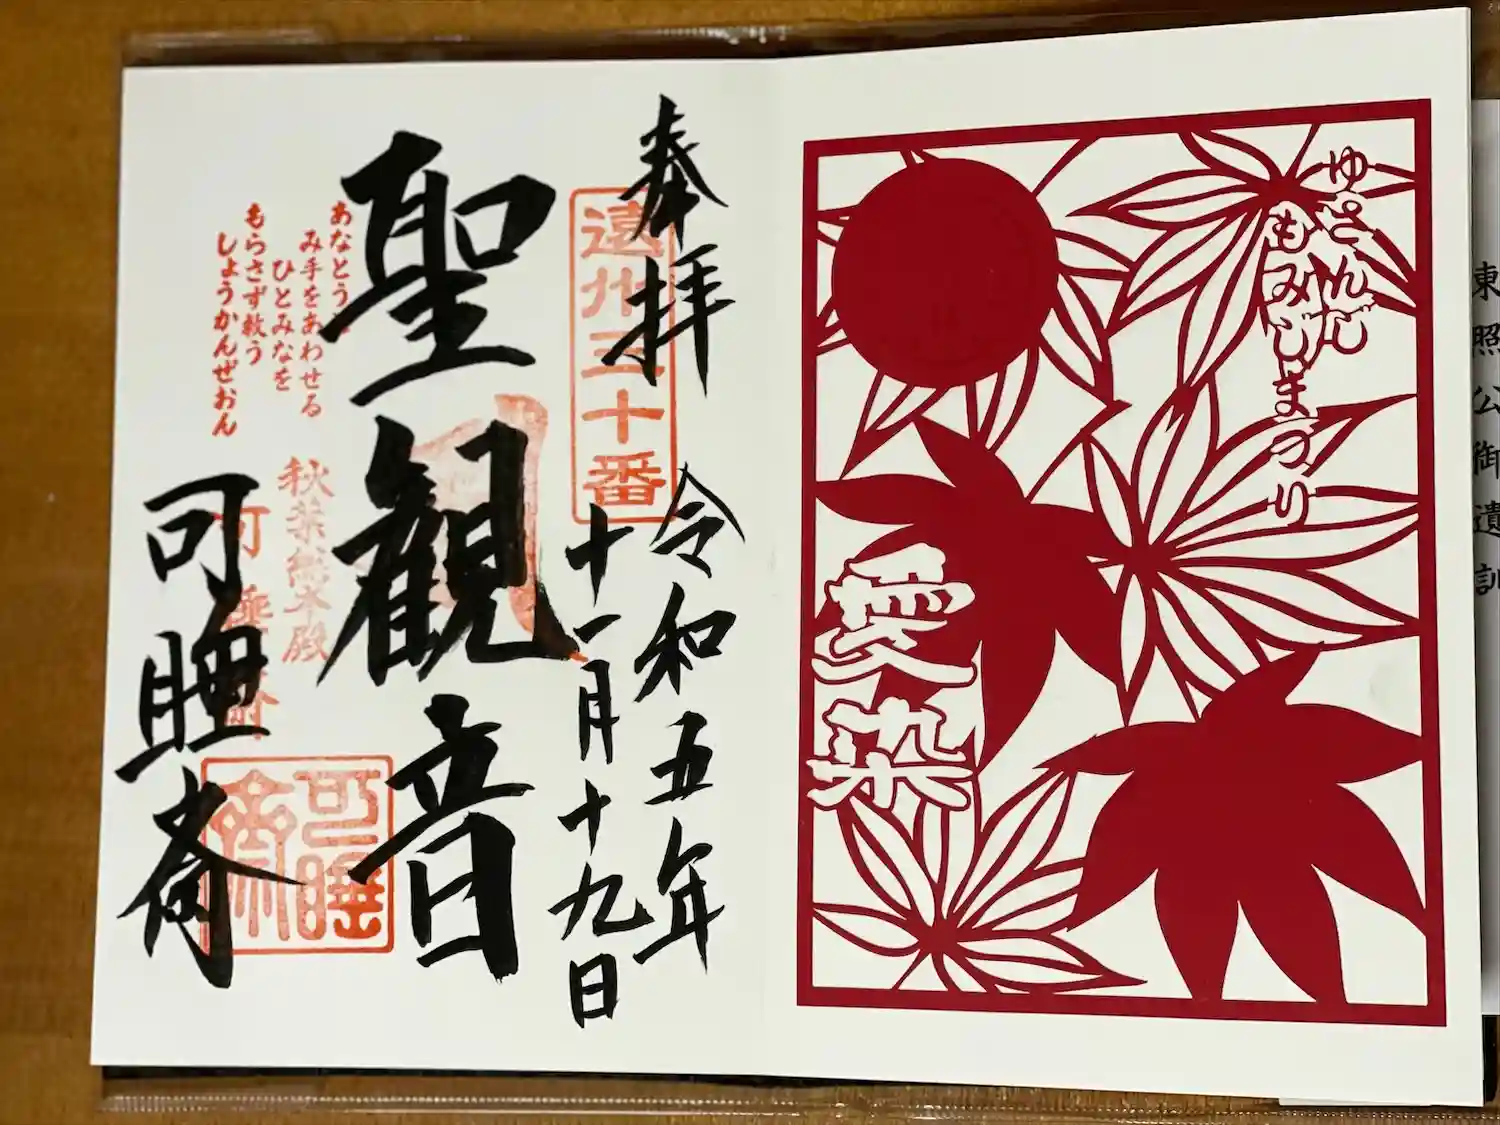 東照公御遺訓
ゆさんじ
もみじまつり
愛染
奉拝
令和五年
十一月十九日
遠州三十番
聖観音
あなとうと
み手をあわせる
ひとみなを
もらさず救う
しょうかんぜおん
秋葉総本殿
可睡斎
可睡斎
可睡斎